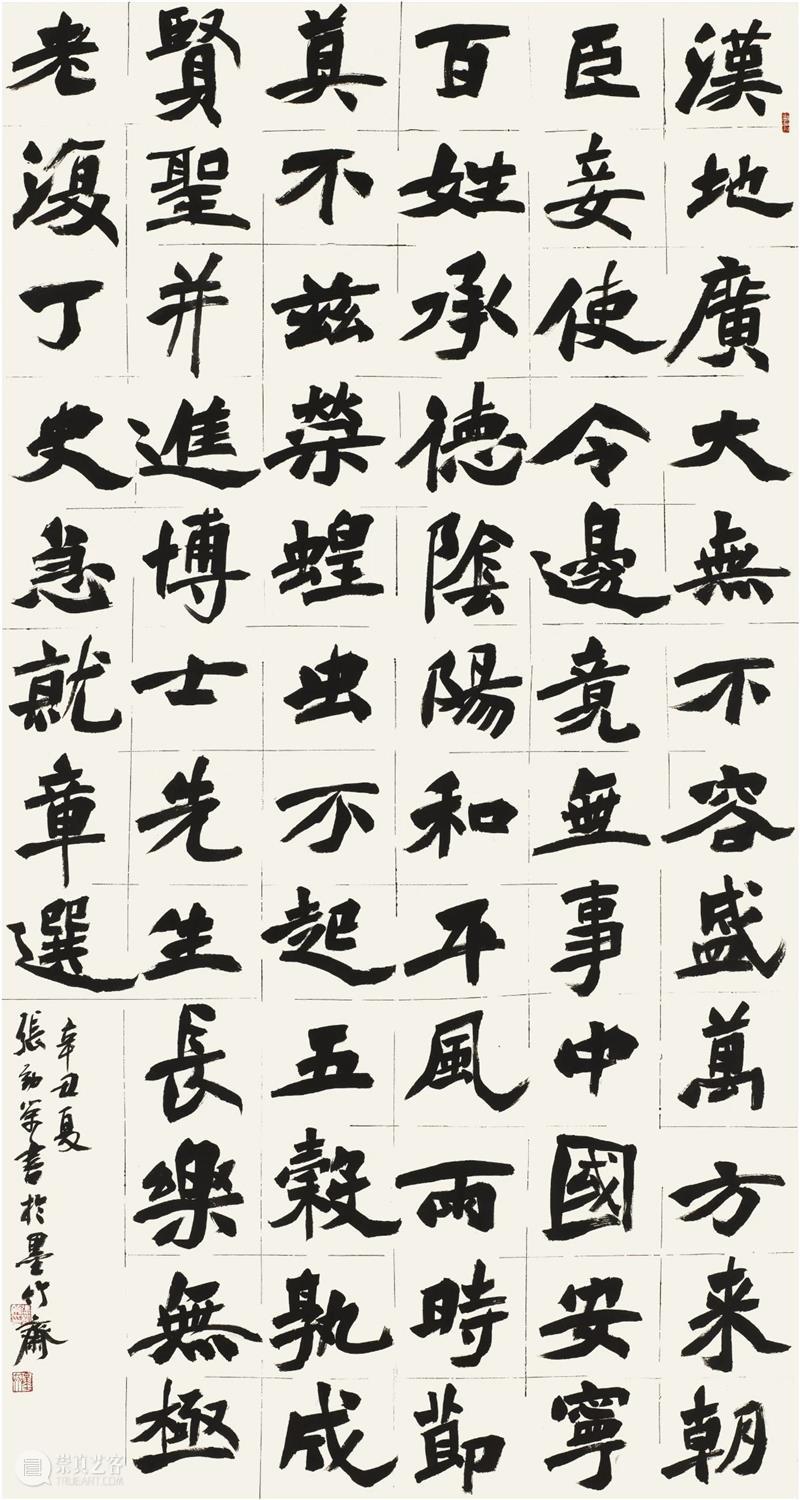 漢地廣大無不容盛萬方来朝
臣妾使令邊竟無事中國安寧
百姓承德陰陽和平風雨時節
莫不兹榮蝗虫不起五穀孰成
賢聖并進博士先生長樂無極
老復丁史急就章選
辛丑夏
張勁榮書於墨竹齋
崇真艺客
TRUEART.COM